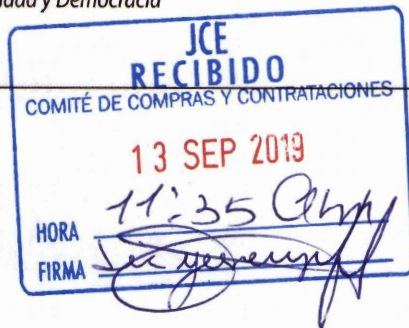 y Democracia
JCE
RECIBIDO
COMITÉ DE COMPRAS Y CONTRATACIONES
13 SEP 2019
HORA 11:35 am
FIRMA